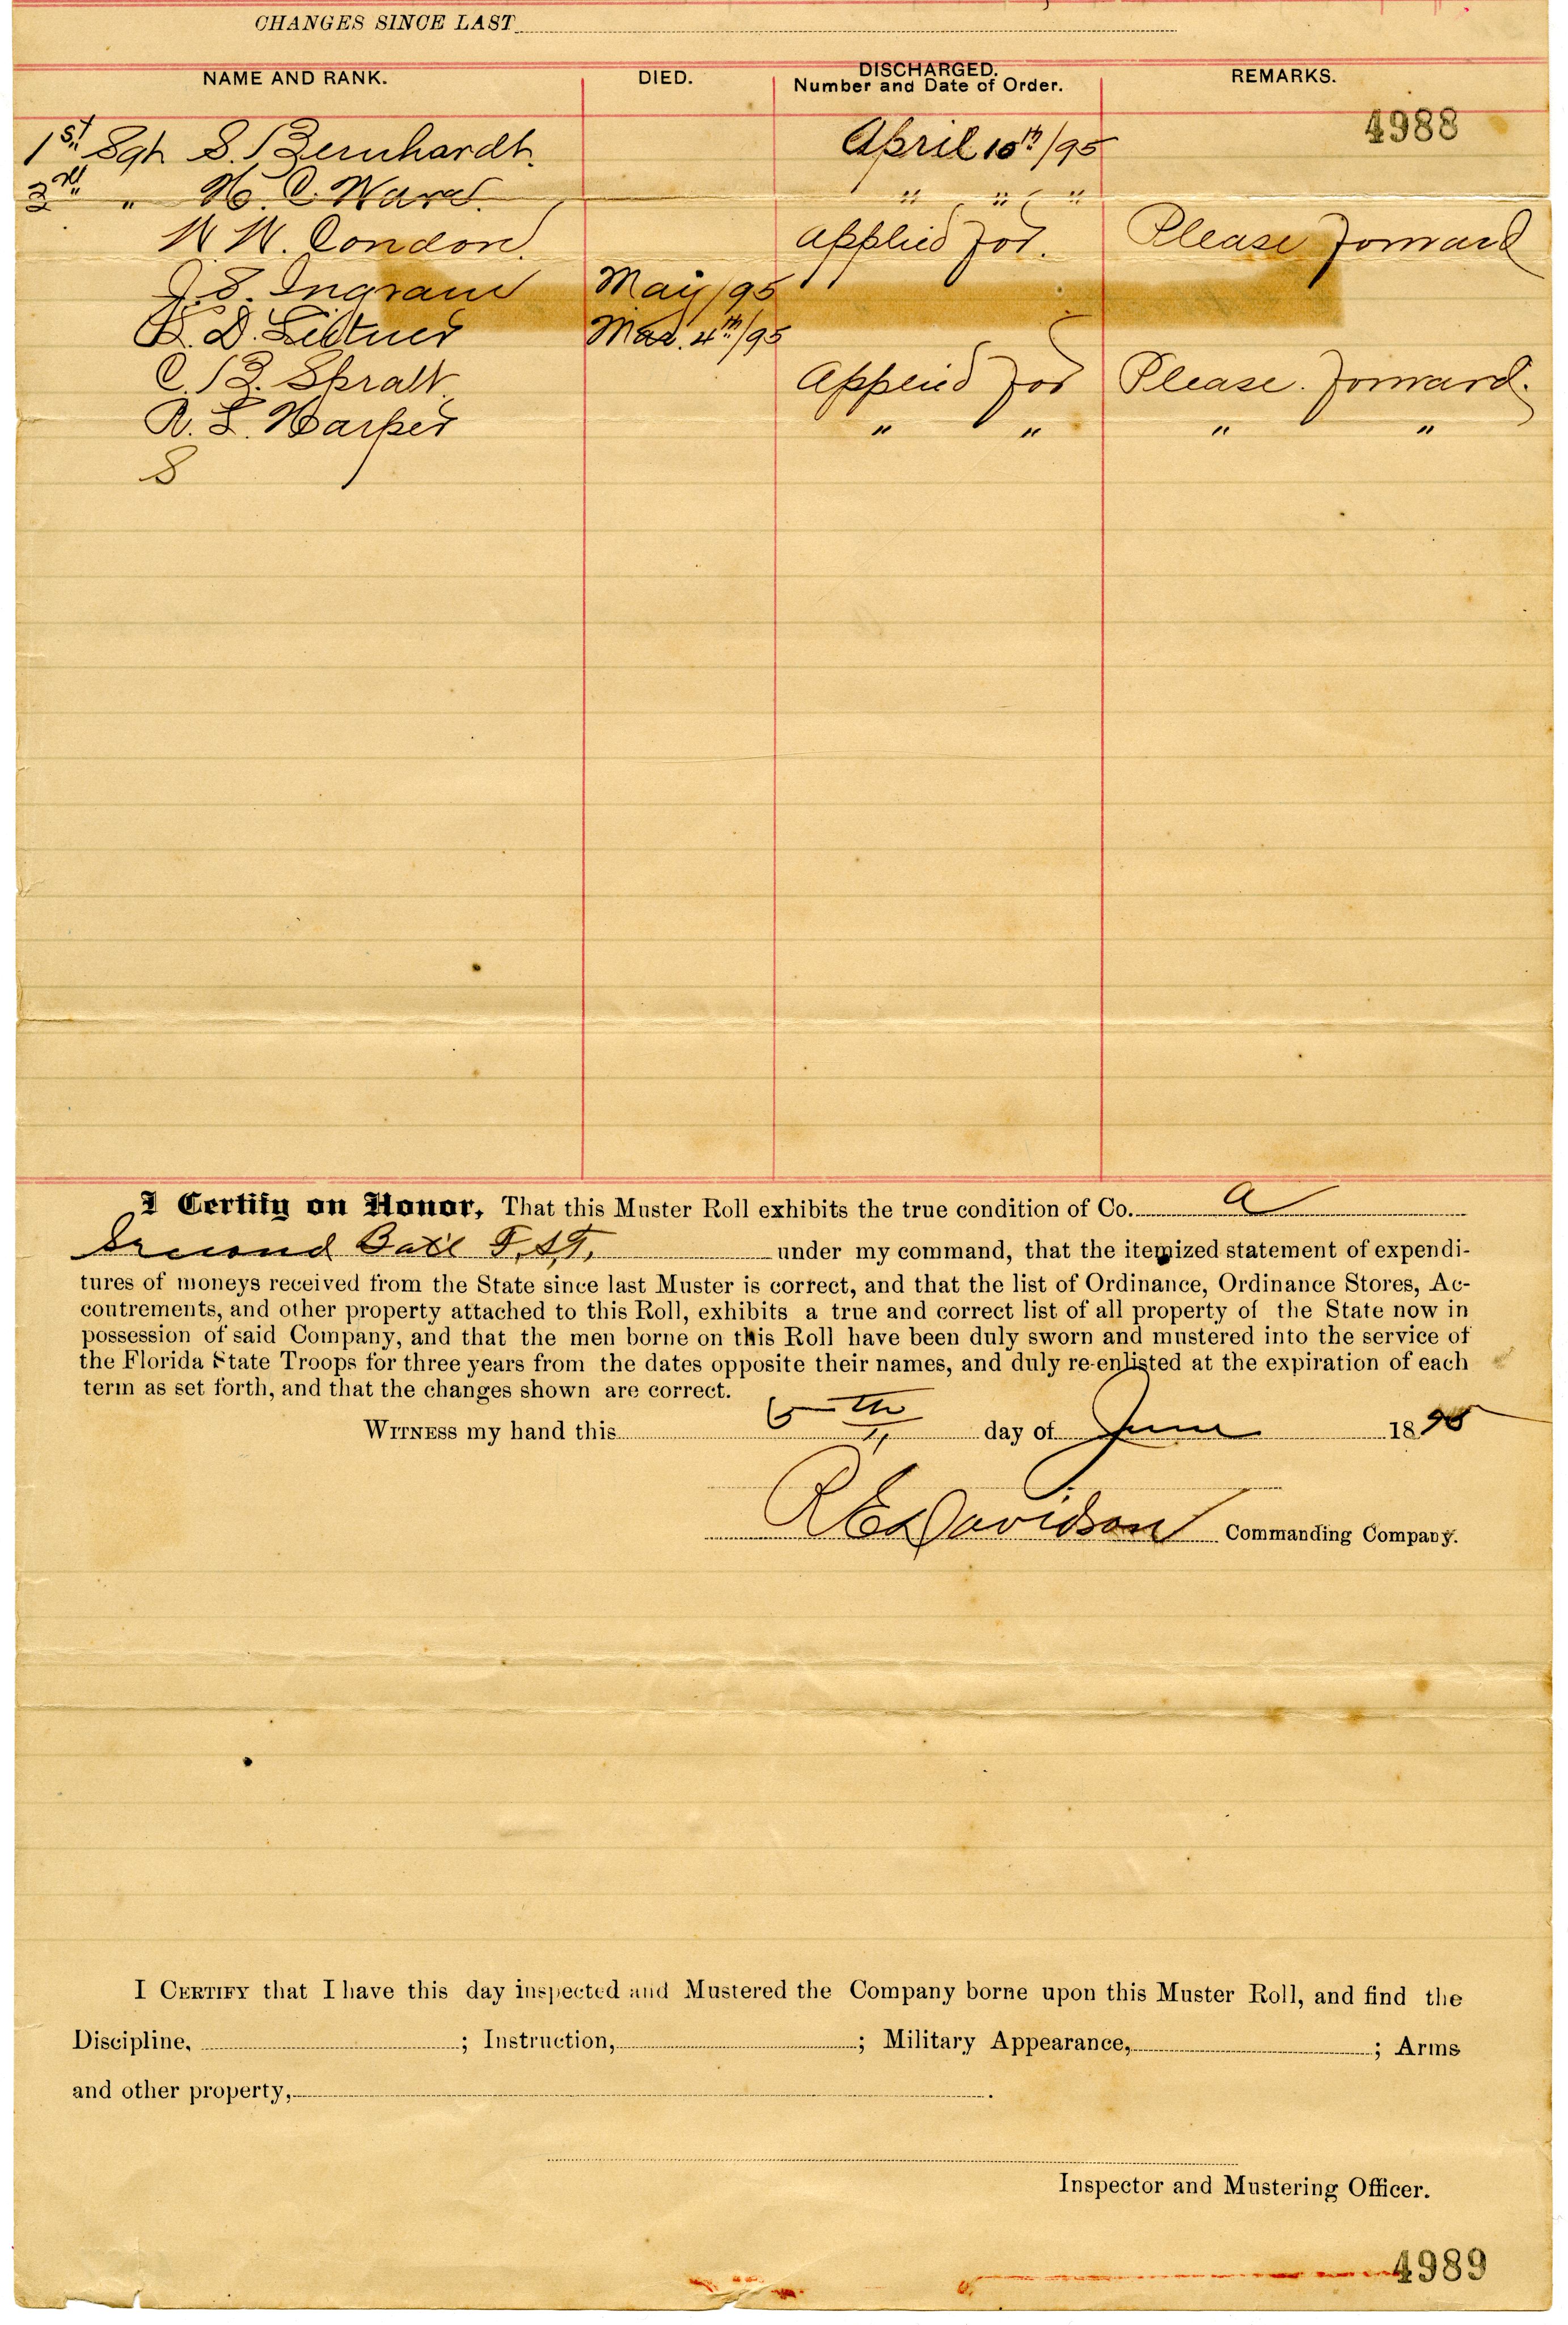 CHANGES SINCE LAST
NAME AND RANK. DIED. DISCHARGED. Number and Date of Order. REMARKS.
4988
1st Sgt S. Bernhardt. April 10th/95
2nd " H. C. Ward. " " "
W. W. Condon. Applied for. Please forward
J. S. Ingram May/95
D. Mar. 4th/95
C. B. Spratt. Applied for Please. forward.
R. L. Harper " " " "
S
I Certify on Honor, That this Muster Roll exhibits the true condition of Co. A
Second Batl F.S.T. under my command, that the itemized statement of expendi-
tures of moneys received from the State since last Muster is correct, and that the list of Ordinance, Ordinance Stores, Ac-
coutrements, and other property attached to this Roll, exhibits a true and correct list of all property of the State now in
possession of said Company, and that the men borne on this Roll have been duly sworn and mustered into the service of
the Florida State Troops for three years from the dates opposite their names, and duly re-enlisted at the expiration of each
term as set forth, and that the changes shown are correct.
WITNESS my hand this 5th day of June 1895
R E Davidson Commanding Company.
I CERTIFY that I have this day inspected and Mustered the Company borne upon this Muster Roll, and find the
Discipline, ; Instruction, ; Military Appearance, ; Arms
and other property, .
Inspector and Mustering Officer.
4989